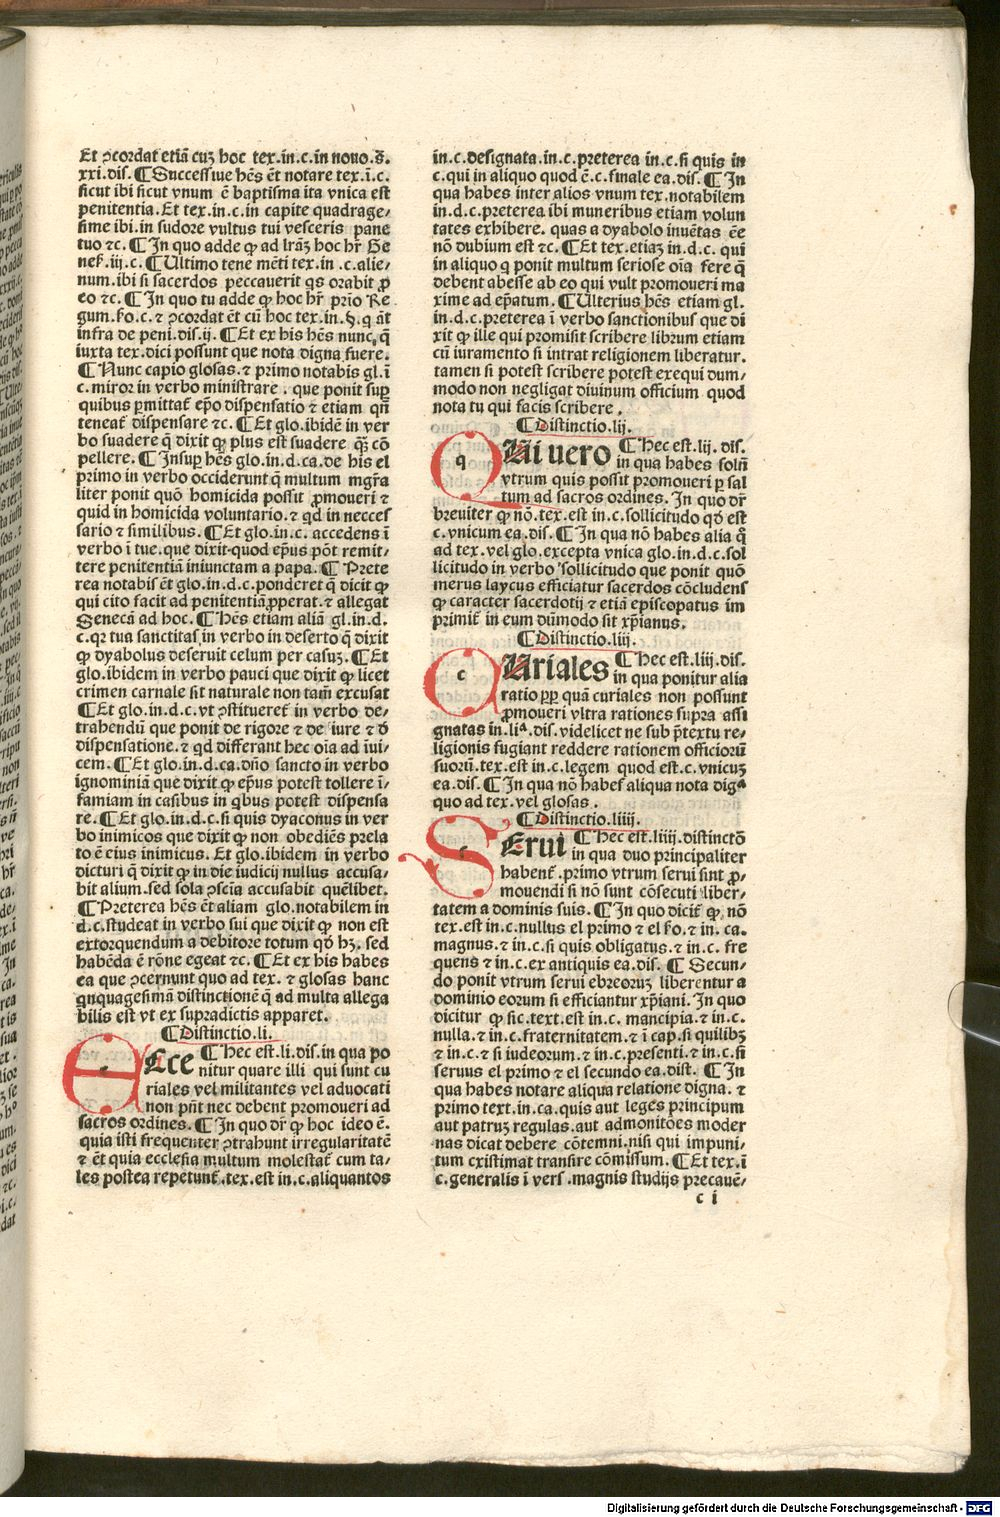 Et ꝯcordat etiã cuʒ hoc tex.in.c.in nouo.
xxi.dis. ¶ Successiue hẽs ẽt notare tex.ĩ.c.
sicut ibi sicut vnum ẽ baptisma ita vnica est
penitentia. Et tex.in.c.in capite quadrage/
sime ibi.in sudore vultus tui vesceris pane
tuo ⁊c. ¶ In quo adde ꝙ ad lrãʒ hoc hr̃ Ge
nes̃.iij.c. ¶ Ultimo tene mẽti tex.in .c.alie/
num.ibi si sacerdos peccauerit qs orabit ꝓ
eo ⁊c. ¶ In quo tu adde ꝙ hoc hr̃ prio Re
gum.ẜo.c. ⁊ ꝯcordat ẽt cũ hoc tex.in.§.q aũt
infra de peni.dis.ij. ¶ Et ex his hẽs nunc q̃
iuxta tex.dici possunt que nota digna fuere.
¶ Nunc capio glosas. ⁊ primo notabis gl.ĩ
c.miror in verbo ministrare . que ponit suꝑ
quibus ꝑmittat̃ ep̃o dispensatio ⁊ etiam qñ
teneat̃ dispensare ⁊c. ¶ Et glo.ibidẽ in ver
bo suadere q̃ dixit ꝙ plus est suadere q̃ʒ cõ
pellere. ¶ Insuꝑ hẽs glo.in.d.ca.de his el
primo in verbo occiderunt q̃ multum mgr̃a
liter ponit quõ homicida possit ꝓmoueri ⁊
quid in homicida voluntario. ⁊ qd in necces
sario ⁊ similibus. ¶ Et glo.in.c. accedens ĩ
verbo ĩ tue.que dixit-quod ep̃us põt remit/
tere penitentiã iniunctam a papa. ¶ Prete
rea notabis ẽt glo.in.d.c.ponderet q̃ dicit ꝙ
qui cito facit ad penitentiã ꝓperat. ⁊ allegat
Senecã ad hoc. ¶ Hẽs etiam aliã gl.in.d.
c.qꝛ tua sanctitas in verbo in deserto q̃ dixit
ꝙ dyabolus deseruit celum per casuʒ. ¶ Et
glo.ibidem in verbo pauci que dixit ꝙ licet
crimen carnale sit naturale non tam̃ excusat
¶ Et glo.in.d.c.vt ꝯstitueret̃ in verbo de/
trahendũ que ponit de rigore ⁊ de iure ⁊ ð
dispensatione. ⁊ qd differant hec oĩa ad ĩui/
cem. ¶ Et glo.in.d.ca.dño sancto in verbo
ignominiã que dixit ꝙ ep̃us potest tollere ĩ/
famiam in casibus in qbus potest dispensa
re. ¶ Et glo.in.d.c.si quis dyaconus in ver
bo inimicos que dixit ꝙ non obediẽs prela
to ẽ eius inimicus. Et glo.ibidem in verbo
dicturi q̃ dixit ꝙ in die iudicij nullus accusa/
bit alium.sed sola ꝯscĩa accusabit quẽlibet.
¶ Preterea hẽs ẽt aliam glo.notabilem in
d.c.studeat in verbo sui que dixit ꝙ non est
extorquendum a debitore totum qð hʒ. sed
habẽda ẽ rõne egeat ⁊c. ¶ Et ex his habes
ea que ꝯcernunt quo ad tex. ⁊ glosas hanc
qnquagesimã distinctionẽ q̃ ad multa allega
bilis est vt ex supradictis apparet.
¶ Distinctio.li.
Ecce ¶ Hec est.li.dis.in qua po
nitur quare illi qui sunt cu
riales vel militantes vel aduocati
non pñt nec debent promoueri ad
sacros ordines. ¶ In quo dr̃ ꝙ hoc ideo ẽ.
quia isti frequenter ꝯtrahunt irregularitatẽ
⁊ ẽt quia ecclesia multum molestat̃ cum ta/
les postea repetunt̃.tex.est in.c.aliquantos
in.c.designata.in.c.preterea in.c.si quis in
c.qui in aliquo quod ẽ.c.finale ea.dis. ¶ In
qua habes inter alios vnum tex.notabilem
in.d.c.preterea ibi muneribus etiam volun
tates exhibere. quas a dyabolo inuẽtas ẽe
nõ dubium est ⁊c. ¶ Et tex.etiaʒ in.d.c. qui
in aliquo q ponit multum seriose oĩa fere q̃
debent abesse ab eo qui vult promoueri ma
xime ad ep̃atum. ¶ Ulterius hẽs etiam gl.
in.d.c.preterea ĩ verbo sanctionibus que di
xit ꝙ ille qui promisit scribere librum etiam
cũ iuramento si intrat religionem liberatur.
tamen si potest scribere potest exequi dum/
modo non negligat diuinum officium quod
nota tu qui facis scribere .
¶ Distinctio.lij.
q Ui uero ¶ Hec est.lij. dis.
in qua habes solũ
vtrum quis possit promoueri ꝑ sal
tum ad sacros ordines. In quo dr̃
breuiter ꝙ nõ.tex.est in.c.sollicitudo qð est
c.vnicum ea.dis. ¶ In qua nõ habes alia q̃
ad tex.vel glo.excepta vnica glo.in.d.c.sol
licitudo in verbo sollicitudo que ponit quõ
merus laycus efficiatur sacerdos cõcludens
ꝙ caracter sacerdotij ⁊ etiã episcopatus im
primit̃ in eum dũmodo sit xp̃ianus.
¶ Distinctio.liij.
c Uriales ¶ Hec est.liij.dis.
in qua ponitur alia
ratio ꝓpꝑ quã curiales non possunt
ꝓmoueri vltra rationes supra assi
gnatas in.liᵃ.dis.videlicet ne sub p̃textu re/
ligionis fugiant reddere rationem officiorũ
suorũ.tex.est in.c.legem quod est.c.vnicuʒ
ea.dis. ¶ In qua nõ habes aliqua nota digᵃ
quo ad tex.vel glosas .
¶ Distinctio.liiij.
Serui ¶ Hec est.liiij.distinctõ
in qua duo principaliter
habent̃ .primo vtrum serui sint ꝓ/
mouendi si nõ sunt cõsecuti liber/
tatem a dominis suis. ¶ In quo dicit̃ ꝙ nõ
tex.est in.c.nullus el primo ⁊ el ẜo.⁊ in. ca.
magnus.⁊ in.c.si quis obligatus.⁊ in.c. fre
quens ⁊ in.c.ex antiquis ea.dis. ¶ Secun/
do ponit vtrum serui ebreoruʒ liberentur a
dominio eorum si efficiantur xp̃iani. In quo
dicitur ꝙ sic.text.est in.c. mancipia.⁊ in.c.
nulla.⁊ in.c.fraternitatem.⁊ ĩ cap.si quilibʒ
⁊ in.c.⁊ si iudeorum.⁊ in.c.presenti.⁊ in.c.si
seruus el primo ⁊ el secundo ea.dist. ¶ In
qua habes notare aliqua relatione digna. ⁊
primo text.in.ca.quis aut leges principum
aut patruʒ regulas.aut admonitões moder
nas dicat debere cõtemni.nisi qui impuni/
tum existimat transire cõmissum. ¶ Et tex.ĩ
c.generalis ĩ vers.magnis studijs precauẽ/
c i
Digitalisierung gefördert durch die Deutsche Forschungsgemeinschaft - DFG